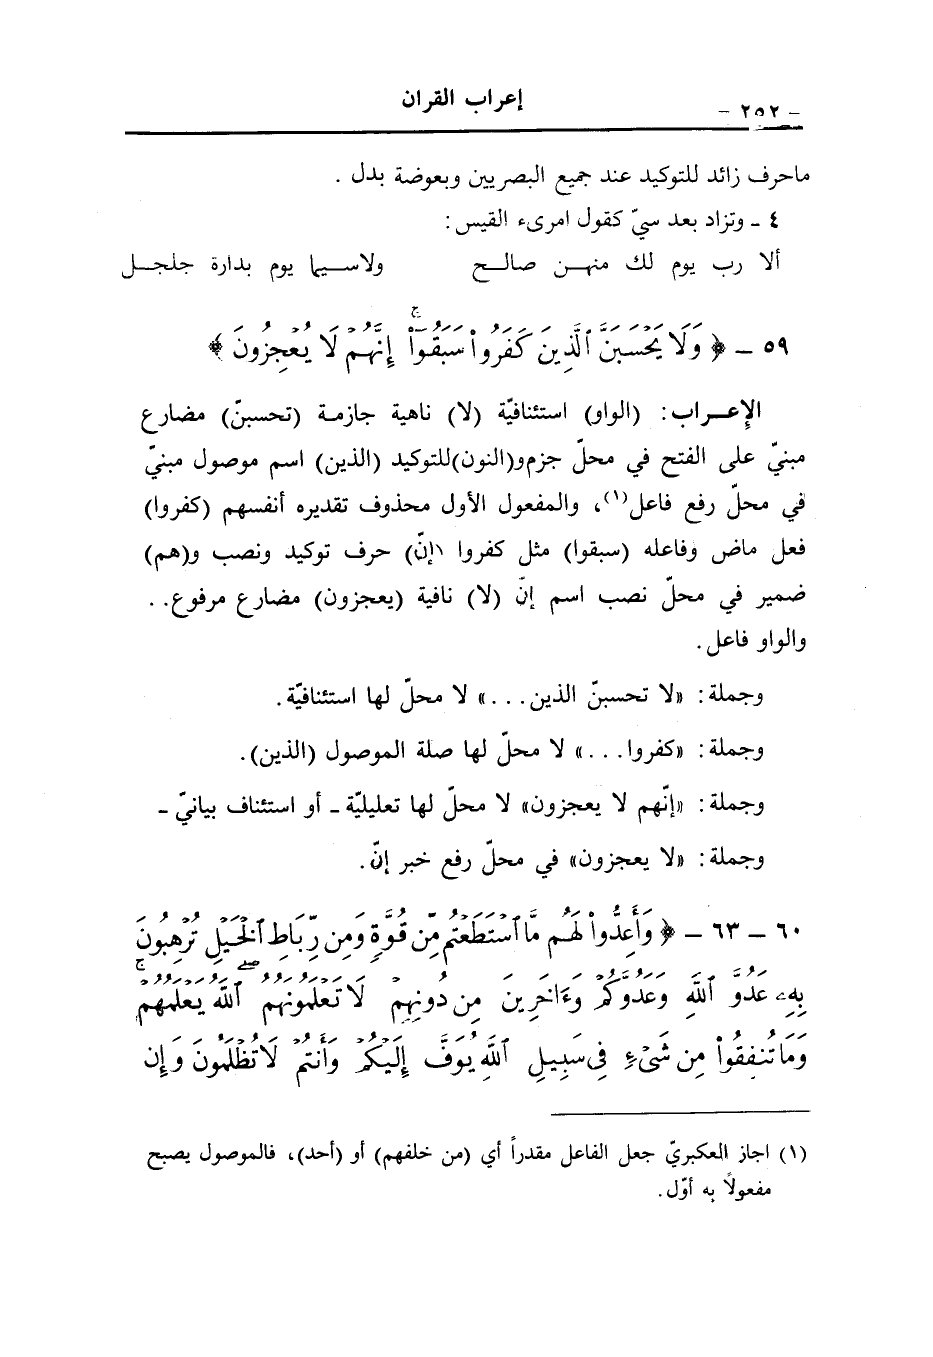 إعراب القران
- ٢٥٢ -
ماحرف زائد للتوكيد عند جميع البصريين وبعوضة بدل .
٤ - وتزاد بعد سيّ كقول امرىء القيس :
ألا رب يوم لك منهن صالح ولاسيما يوم بدارة جلجل
٥٩ - ﴿ وَلَا يَحْسَبَنَّ ٱلَّذِينَ كَفَرُواْ سَبَقُوٓاْۚ إِنَّهُمْ لَا يُعْجِزُونَ ﴾
الإعراب: (الواو) استئنافيّة (لا) ناهية جازمة (تحسبنّ) مضارع
مبنيّ على الفتح في محلّ جزم و(النون)للتوكيد (الذين) اسم موصول مبنيّ
في محلّ رفع فاعل(١)، والمفعول الأول محذوف تقديره أنفسهم (كفروا)
فعل ماض وفاعله (سبقوا) مثل كفروا (إنّ) حرف توكيد ونصب و(هم)
ضمير في محلّ نصب اسم إنّ (لا) نافية (يعجزون) مضارع مرفوع. .
والواو فاعل.
وجملة: «لا تحسبنّ الذين. . .» لا محلّ لها استئنافيّة.
وجملة: «كفروا. . .» لا محلّ لها صلة الموصول (الذين).
وجملة: «إنّهم لا يعجزون» لا محلّ لها تعليليّة - أو استئناف بيانيّ -
وجملة: «لا يعجزون» في محلّ رفع خبر إنّ.
٦٠ - ٦٣ - ﴿ وَأَعِدُّواْ لَهُم مَّا ٱسْتَطَعْتُم مِّن قُوَّةٍ وَمِن رِّبَاطِ ٱلْخَيْلِ تُرْهِبُونَ
بِهِۦ عَدُوَّ ٱللَّهِ وَعَدُوَّكُمْ وَءَاخَرِينَ مِن دُونِهِمْ لَا تَعْلَمُونَهُمُ ۖ ٱللَّهُ يَعْلَمُهُمْۚ
وَمَا تُنفِقُواْ مِن شَىْءٍ فِى سَبِيلِ ٱللَّهِ يُوَفَّ إِلَيْكُمْ وَأَنتُمْ لَا تُظْلَمُونَ وَإِن
(١) اجاز العكبريّ جعل الفاعل مقدراً أي (من خلفهم) أو (أحد)، فالموصول يصبح
مفعولاً به أوّل.